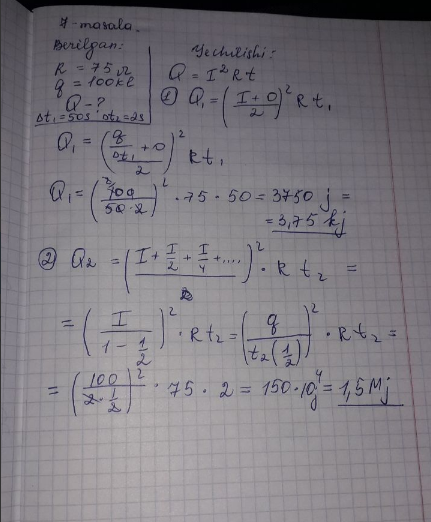 7-masala.
Berilgan:
R = 75 Ω
q = 100 kl
Q - ?
Δt₁ = 50s Δt₂ = 2s
Yechilishi:
Q = I² R t
① Q₁ = (I + 0 / 2)² R t₁
Q₁ = (q/Δt₁ + 0 / 2)² R t₁
Q₁ = (100 / 50 · 2)² · 75 · 50 = 3750 j =
= 3,75 kj
② Q₂ = (I + I/2 + I/4 + .... / 2)² · R t₂ =
= (I / 1 - 1/2)² · R t₂ = (q / t₂ (1/2))² · R t₂ =
= (100 / 2 · 1/2)² · 75 · 2 = 150 · 10⁴ j = 1,5 Mj